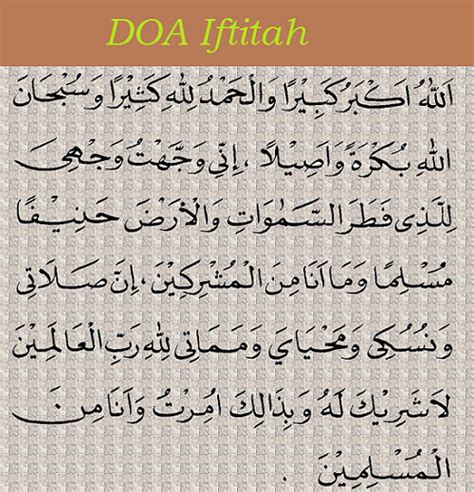 DOA Iftitah
اَللّٰهُ اَكْبَرُ كَبِيْرًا وَالْحَمْدُ لِلّٰهِ كَثِيْرًا وَسُبْحَانَ
اللّٰهِ بُكْرَةً وَاَصِيْلًا ، اِنِّي وَجَّهْتُ وَجْهِيَ
لِلَّذِى فَطَرَ السَّمٰوَاتِ وَالْاَرْضَ حَنِيْفًا
مُسْلِمًا وَمَا اَنَا مِنَ الْمُشْرِكِيْنَ ، اِنَّ صَلَاتِى
وَنُسُكِى وَمَحْيَايَ وَمَمَاتِى لِلّٰهِ رَبِّ الْعَالَمِيْنَ
لَا شَرِيْكَ لَهُ وَبِذَالِكَ اُمِرْتُ وَاَنَا مِنَ
الْمُسْلِمِيْنَ .